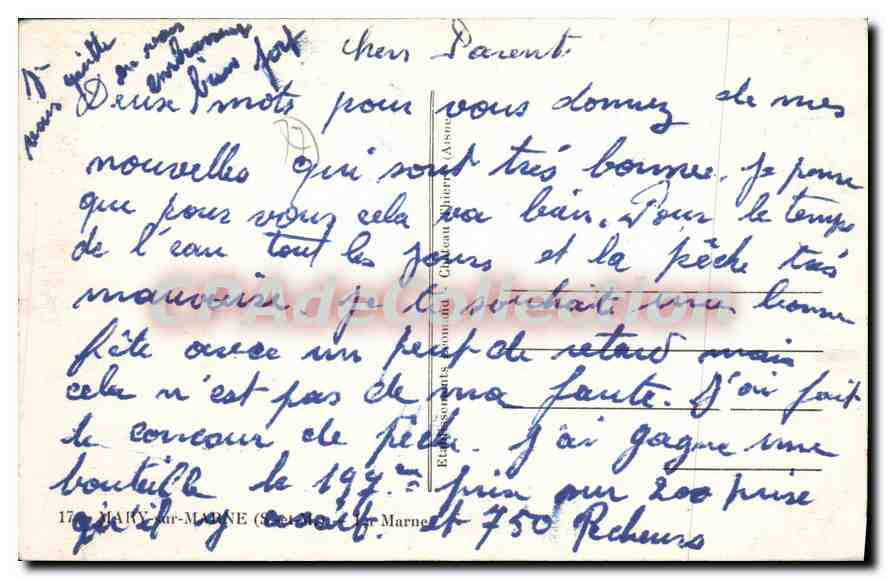 chers Parents
Deux mots pour vous donnez de mes
nouvelles qui sont très bonnes. je pense
que pour vous cela va bien. Pour le temps
de l'eau tout les jours et la pêche très
mauvaise. je te souhaite une bonne
fête avec un peut de retard mais
cela n'est pas de ma faute. J'ai fait
le concour de pêche. J'ai gagne une
bouteille le 197.em prix sur 200 prise
qu'il y avait. et 750 Pecheurs
je vous quitte
en vous
embrassant
bien fort
17 - MARY-sur-MARNE (S.-et-M.) - La Marne
Etablissements - Château-Thierry (Aisne)
CPADeCollection